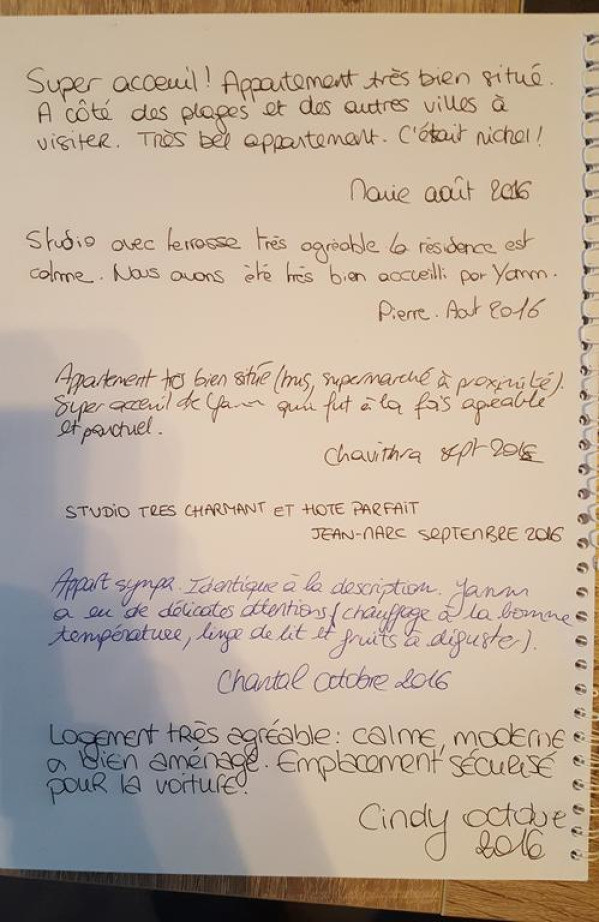 Super acceuil! Appartement très bien situé.
A côté des plages et des autres villes à
visiter. Très bel appartement. C'était nichel!
Marie août 2016
Studio avec terrasse très agréable la résidence est
calme. Nous avons été très bien accueilli par Yann.
Pierre. Aout 2016
Appartement très bien situé (bus, supermarché à proximité).
Super acceuil de Yann qui fut à la fois agréable
et ponctuel.
Chavithra sept 2016
STUDIO TRES CHARMANT ET HOTE PARFAIT
JEAN-MARC SEPTEMBRE 2016
Appart sympa. Identique à la description. Yann
a eu de délicates attentions (chauffage à la bonne
température, linge de lit et fruits à déguster).
Chantal Octobre 2016
Logement très agréable: calme, moderne
a bien aménagé. Emplacement sécurisé
pour la voiture.
Cindy octobre
2016